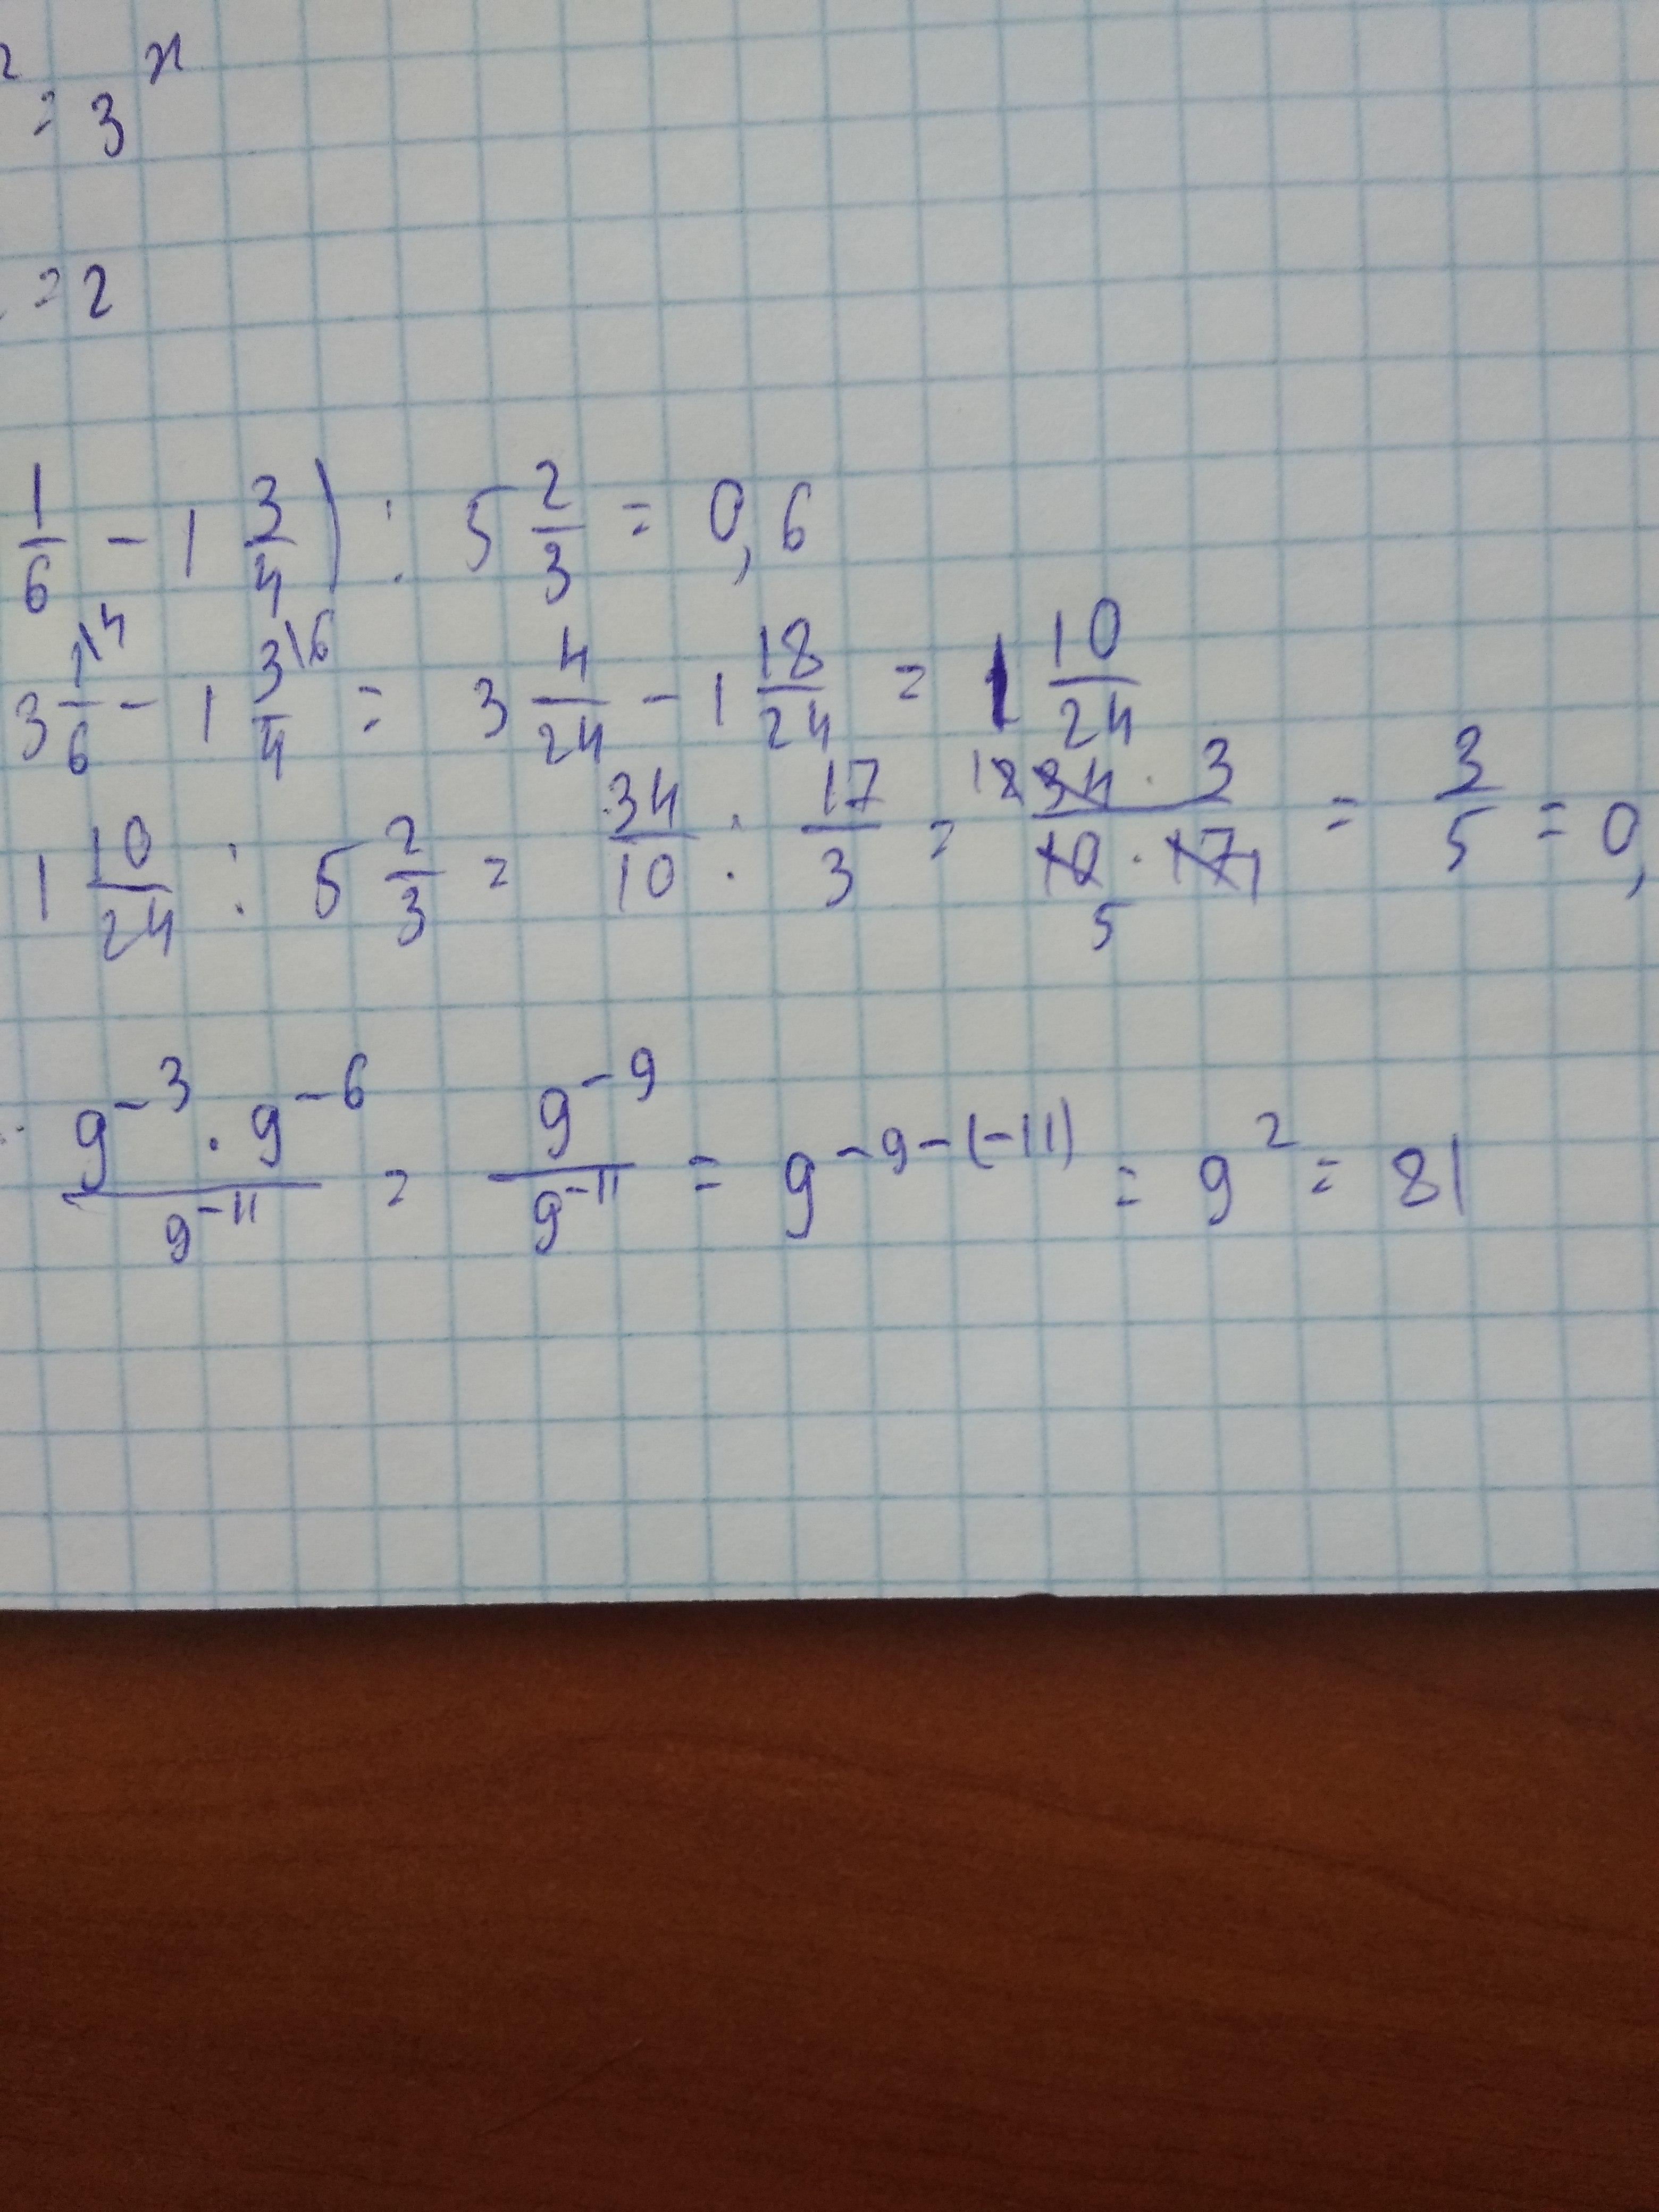 2 = 3^x
= 2
1/6 - 1 3/4) : 5 2/3 = 0,6
3 1\4/6 - 1 3\6/4 = 3 4/24 - 1 18/24 = 1 10/24
1 10/24 : 5 2/3 = 34/10 : 17/3 = 34 · 3/10 · 17 = 3/5 = 0,
9^-3 · 9^-6/9^-11 = 9^-9/9^-11 = 9^-9-(-11) = 9^2 = 81